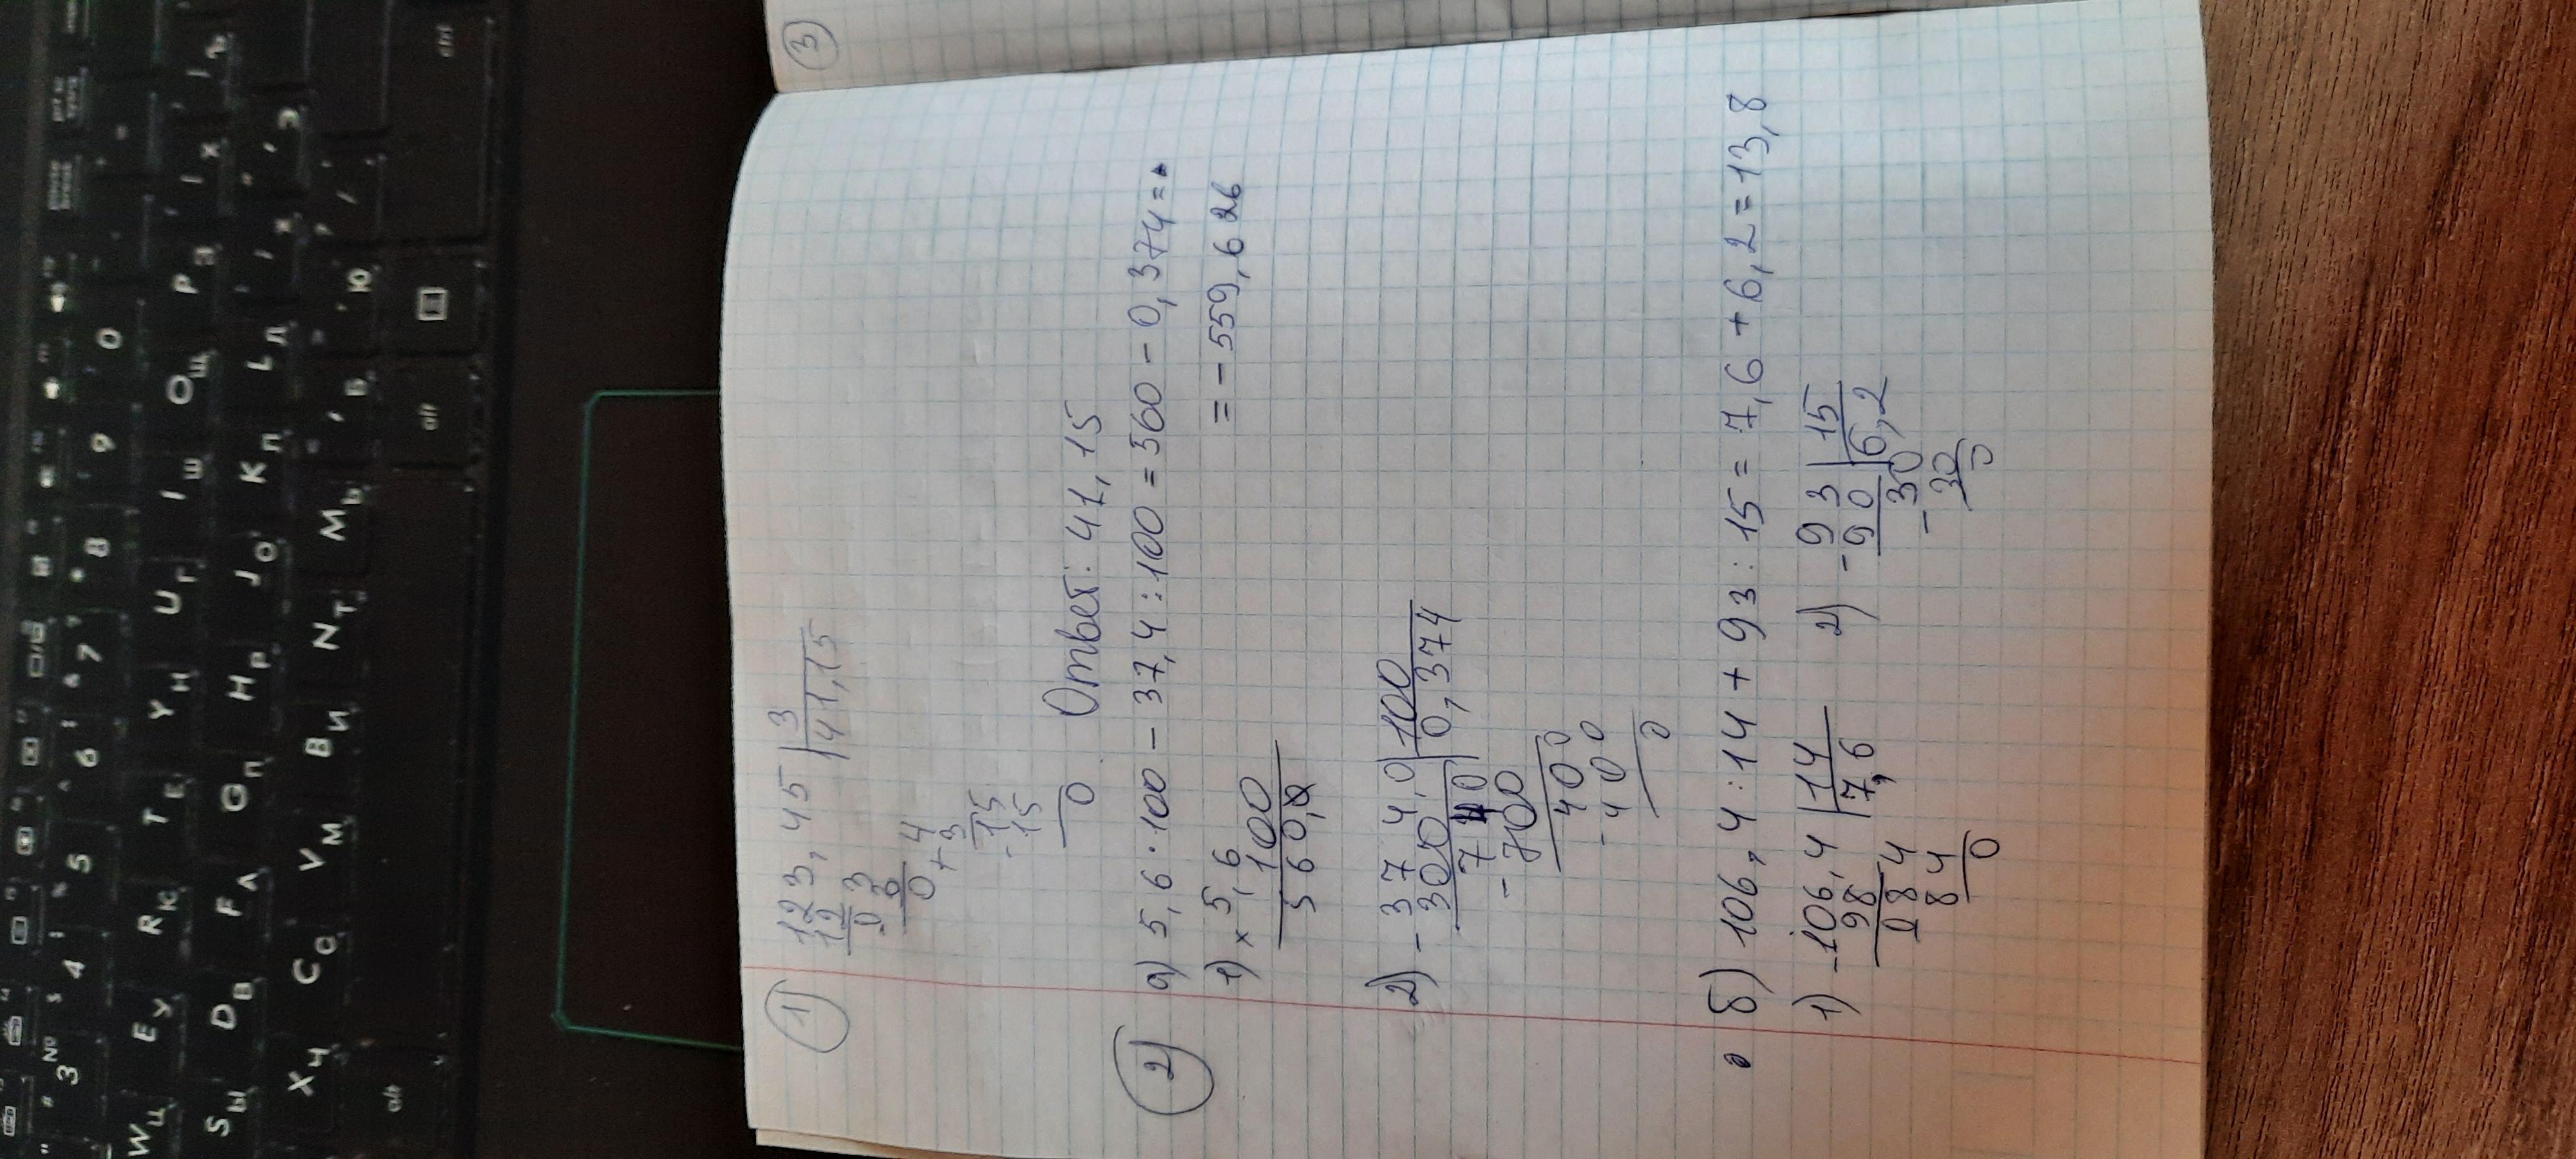 ① 123,45 | 3
12 | 41,15
03
3
04
3
15
15
0
Ответ: 41,15
② а) 5,6 · 100 - 37,4 : 100 = 560 - 0,374 =
= - 559,626
1) × 5,6
100
560,0
2) - 374,0 | 100
300 | 0,374
740
- 700
400
- 400
0
б) 106,4 : 14 + 93 : 15 = 7,6 + 6,2 = 13,8
1) - 106,4 | 14 2) - 93 | 15
98 | 7,6 90 | 6,2
084 - 30
84 30
0 0
③